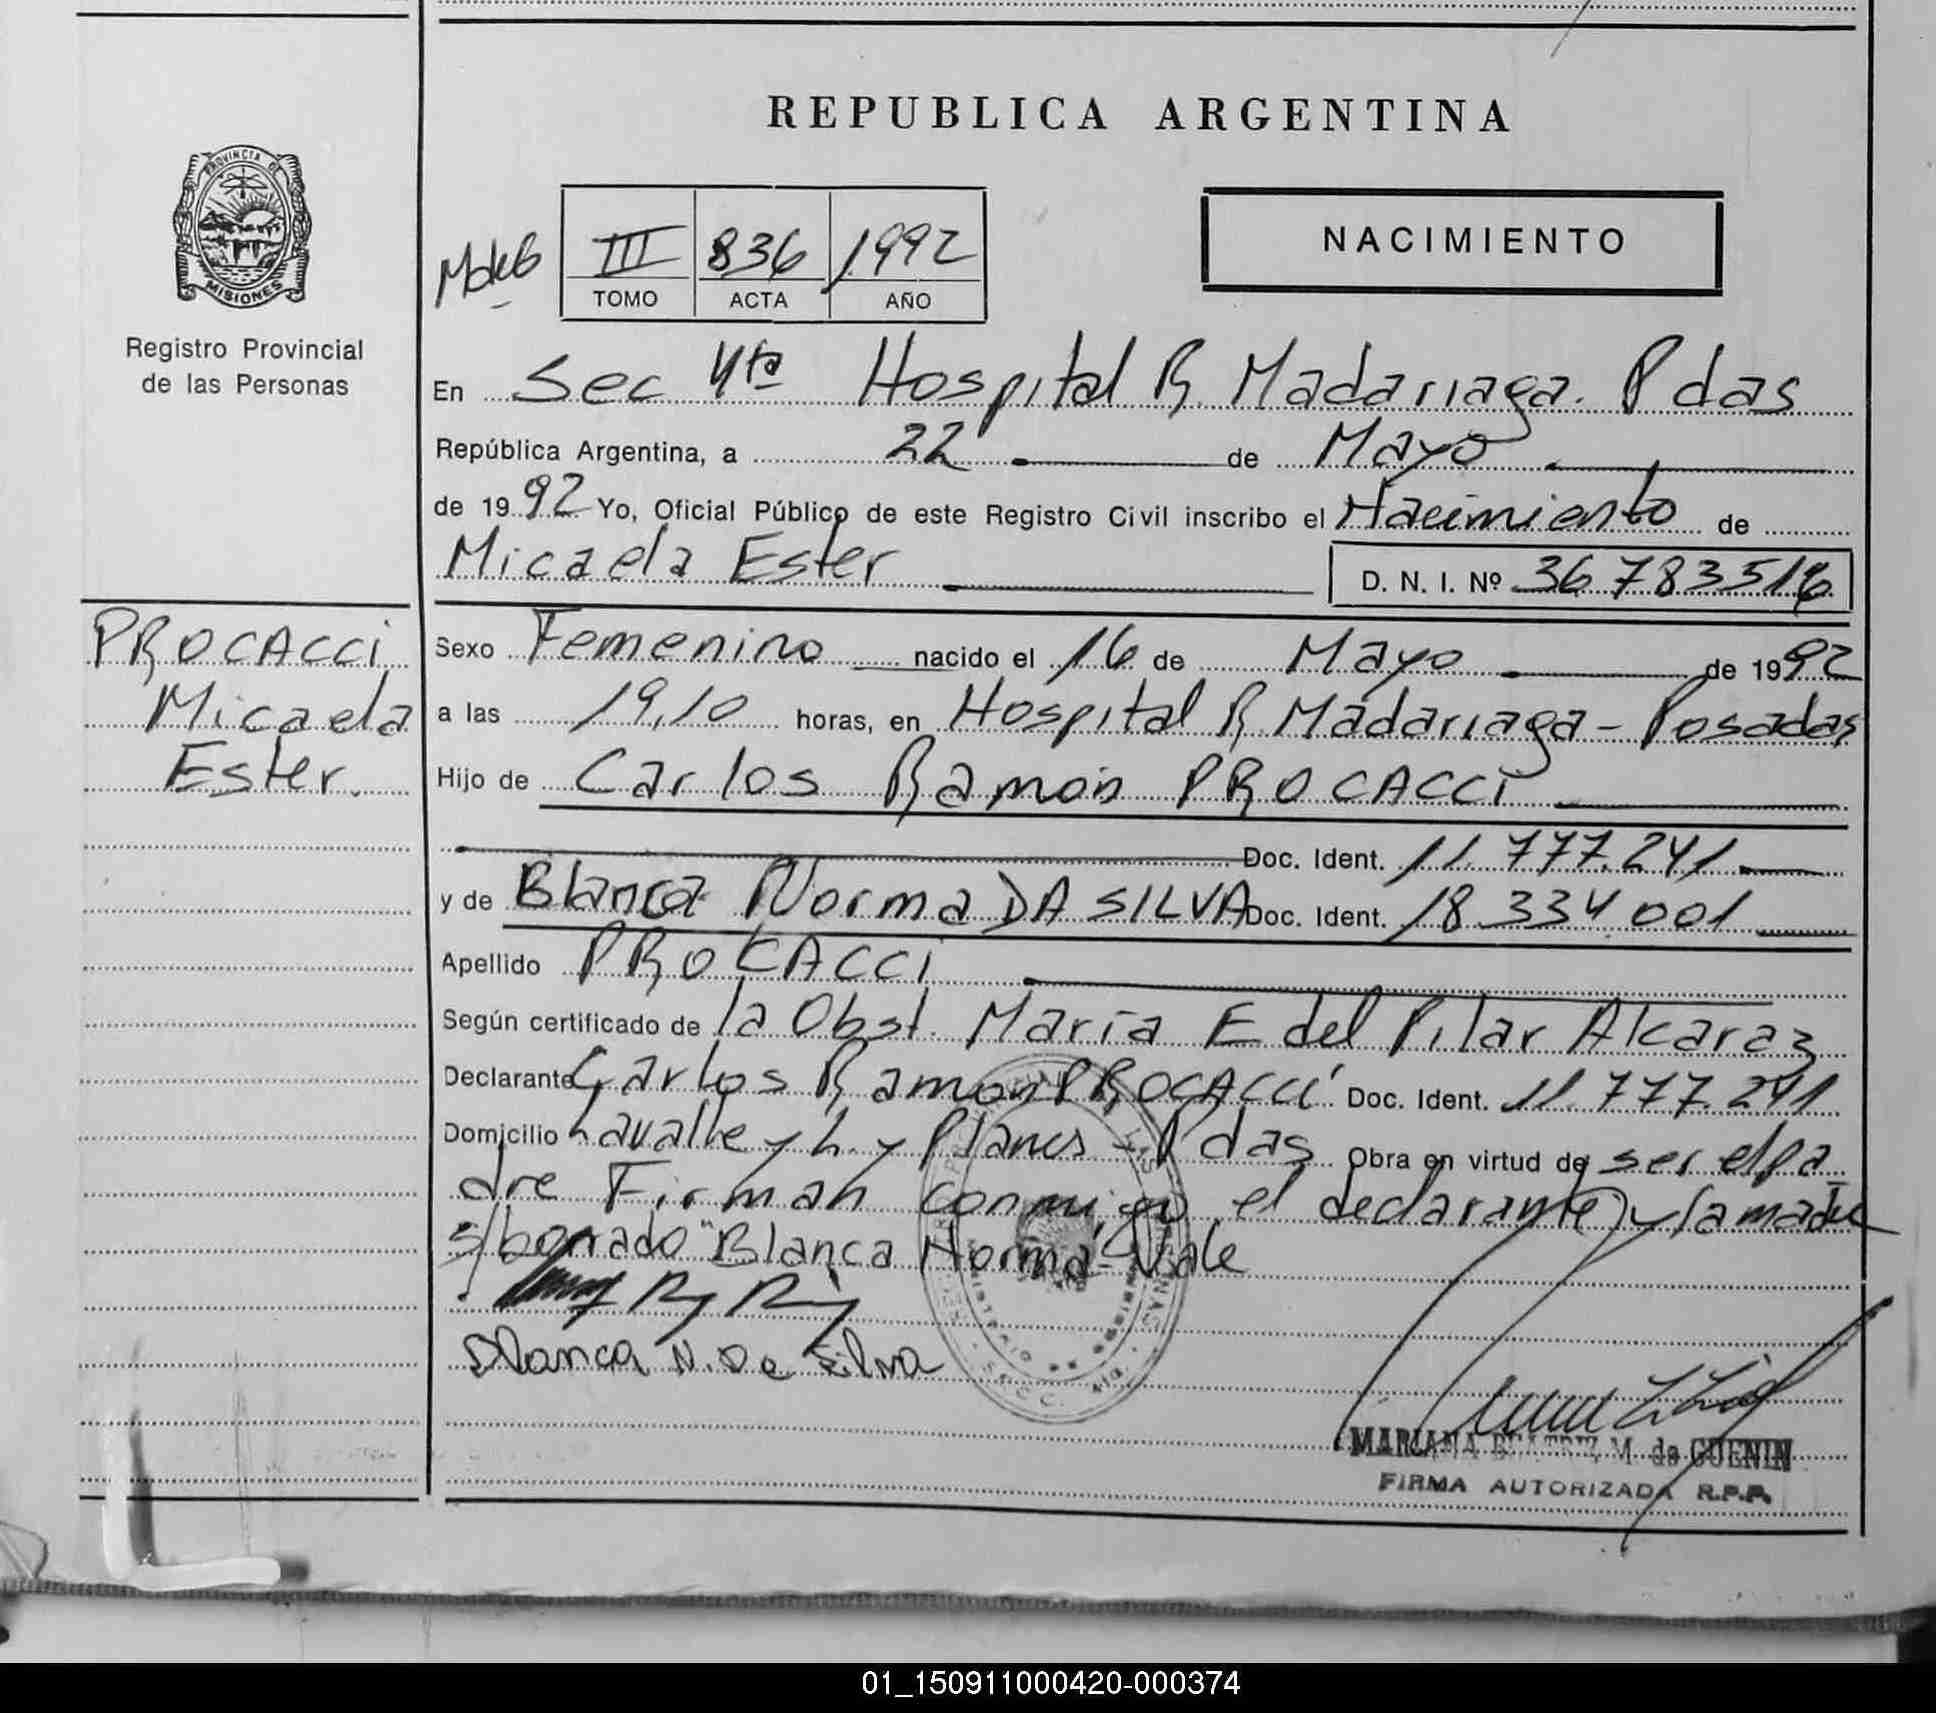 REPUBLICA ARGENTINA
PROVINCIA DE
MISIONES
Registro Provincial
de las Personas
III 836 1992
TOMO ACTA AÑO
NACIMIENTO
En Sec 4ta Hospital R. Madariaga. Pdas
República Argentina, a 22 de Mayo
de 1992 Yo, Oficial Público de este Registro Civil inscribo el Nacimiento de
Micaela Ester D. N. I. Nº 36 783516
PROCACCI
Micaela
Ester.
Sexo Femenino nacido el 16 de Mayo de 1992
a las 19,10 horas, en Hospital R. Madariaga - Posadas
Hijo de Carlos Ramón PROCACCI
Doc. Ident. 11.777.241
y de Blanca Norma DA SILVA Doc. Ident. 18.334.001
Apellido PROCACCI
Según certificado de la Obst. María E del Pilar Alcaraz
Declarante Carlos Ramon PROCACCI Doc. Ident. 11.777.241
Domicilio Lavalle y L. y Planes - Pdas Obra en virtud de ser el pa
dre Firman conmigo el declarante y la madre
s/borrado "Blanca Norma" Vale
Blanca N. Da Silva
MARIANA BEATRIZ M. de GUENIN
FIRMA AUTORIZADA R.P.P.
01_150911000420-000374